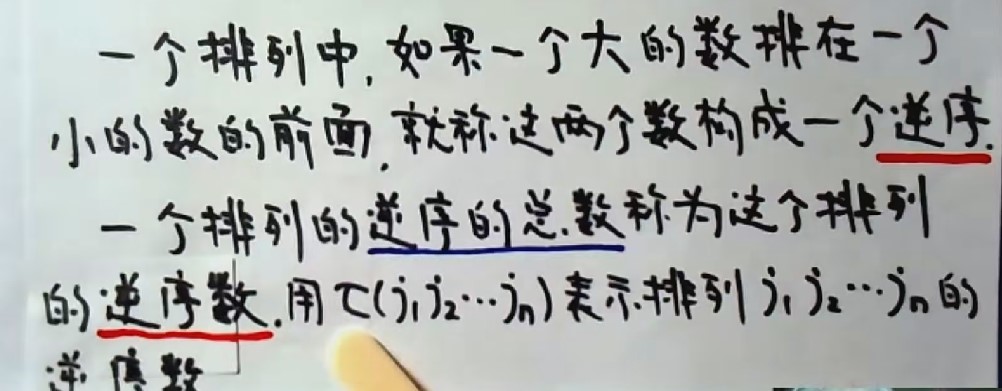 一个排列中,如果一个大的数排在一个
小的数的前面,就称这两个数构成一个逆序.
一个排列的逆序的总数称为这个排列
的逆序数.用τ(j₁j₂…jₙ)表示排列j₁j₂…jₙ的
逆序数